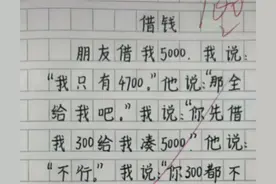 借钱
朋友借我5000，我说：
“我只有4700。”他说：“那全
给我吧。”我说：“你先借
我300给我凑5000”他说：
“不行。”我说：“你300都不